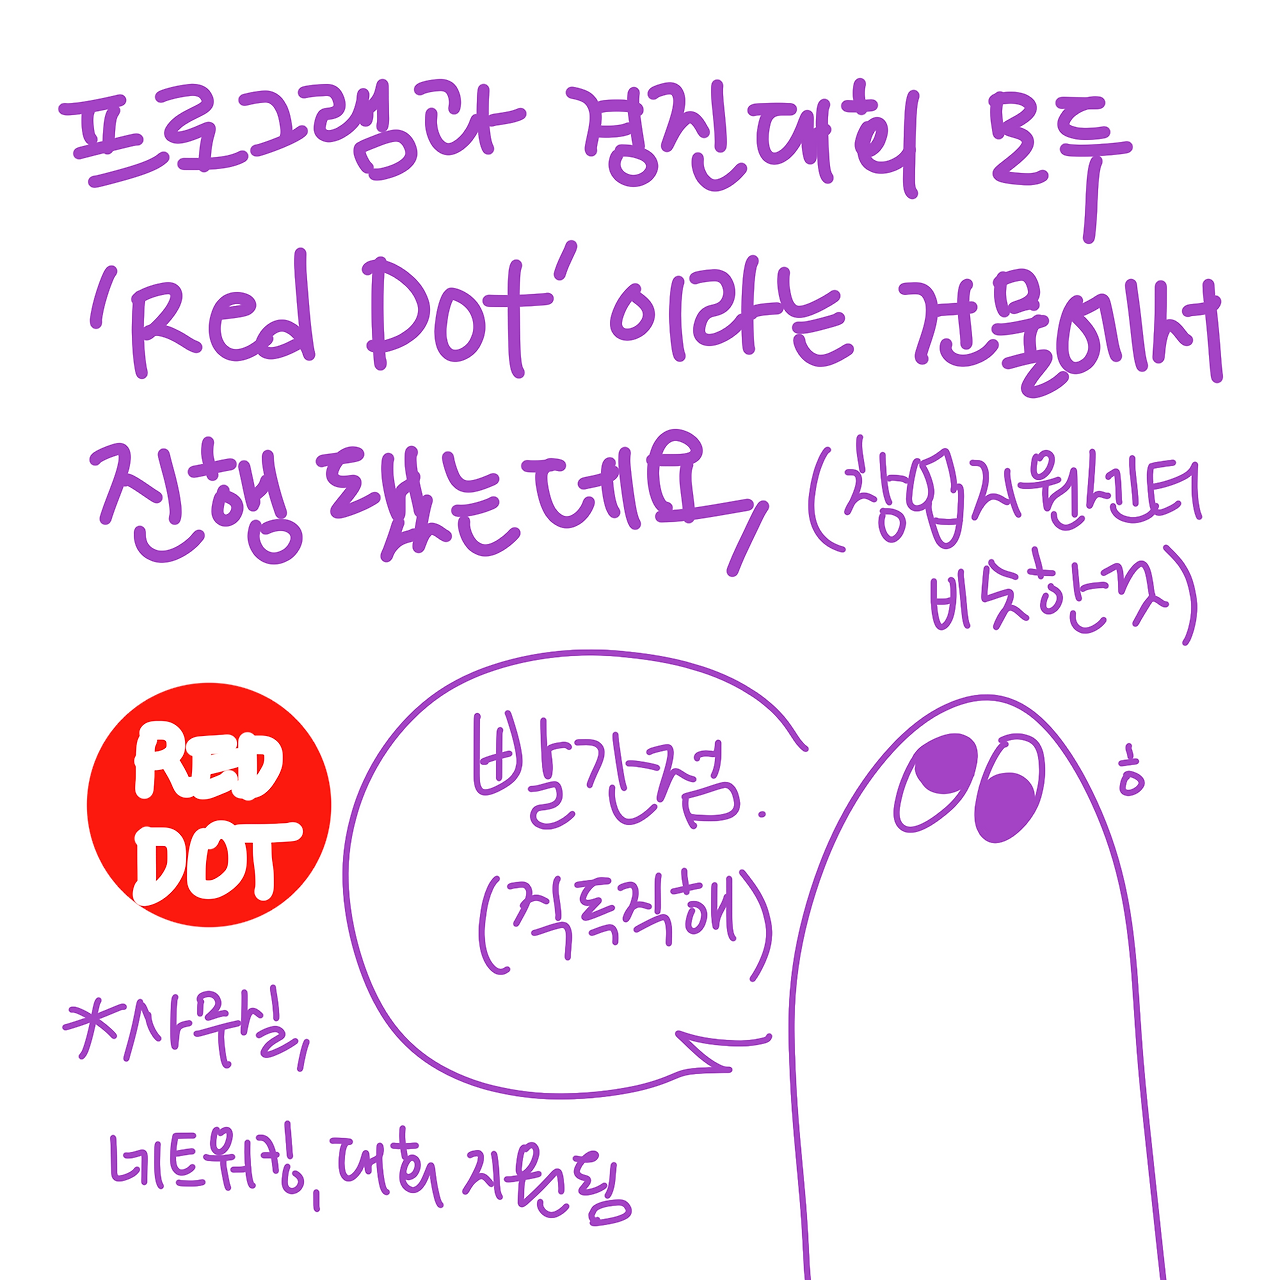 프로그램과 경진대회 모두
'Red Dot' 이라는 건물에서
진행 됐는데요,
(창업지원센터
비슷한것)
RED
DOT
빨간점.
(직독직해)
ㅎ
*사무실,
네트워킹, 대회 지원됨